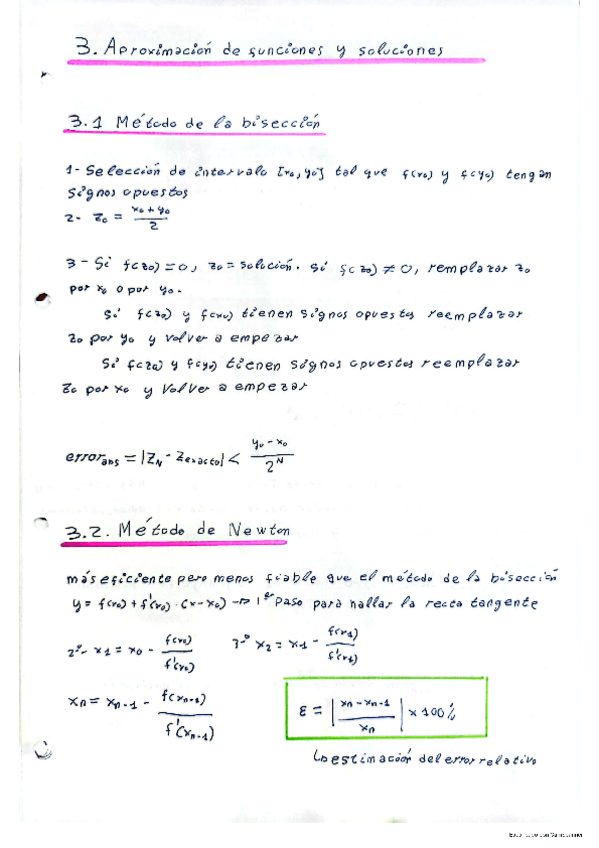 3. Aproximación de funciones y soluciones
3.1 Método de la bisección
1- Selección de intervalo [x₀, y₀] tal que f(x₀) y f(y₀) tengan
signos opuestos
2- z₀ = (x₀ + y₀)/2
3- Si f(z₀) = 0, z₀ = solución. Si f(z₀) ≠ 0, remplazar z₀
por x₀ o por y₀.
Si f(z₀) y f(x₀) tienen signos opuestos reemplazar
z₀ por y₀ y volver a empezar
Si f(z₀) y f(y₀) tienen signos opuestos reemplazar
z₀ por x₀ y volver a empezar
error_abs = |Z_N - Z_exacto| < (y₀ - x₀)/2^N
3.2. Método de Newton
más eficiente pero menos fiable que el método de la bisección
y = f(x₀) + f'(x₀) · (x - x₀) → 1er paso para hallar la recta tangente
2º- x₁ = x₀ - f(x₀)/f'(x₀) 3º x₂ = x₁ - f(x₁)/f'(x₁)
x_n = x_{n-1} - f(x_{n-1})/f'(x_{n-1}) ε = |(x_n - x_{n-1})/x_n| x 100%
↳ estimación del error relativo